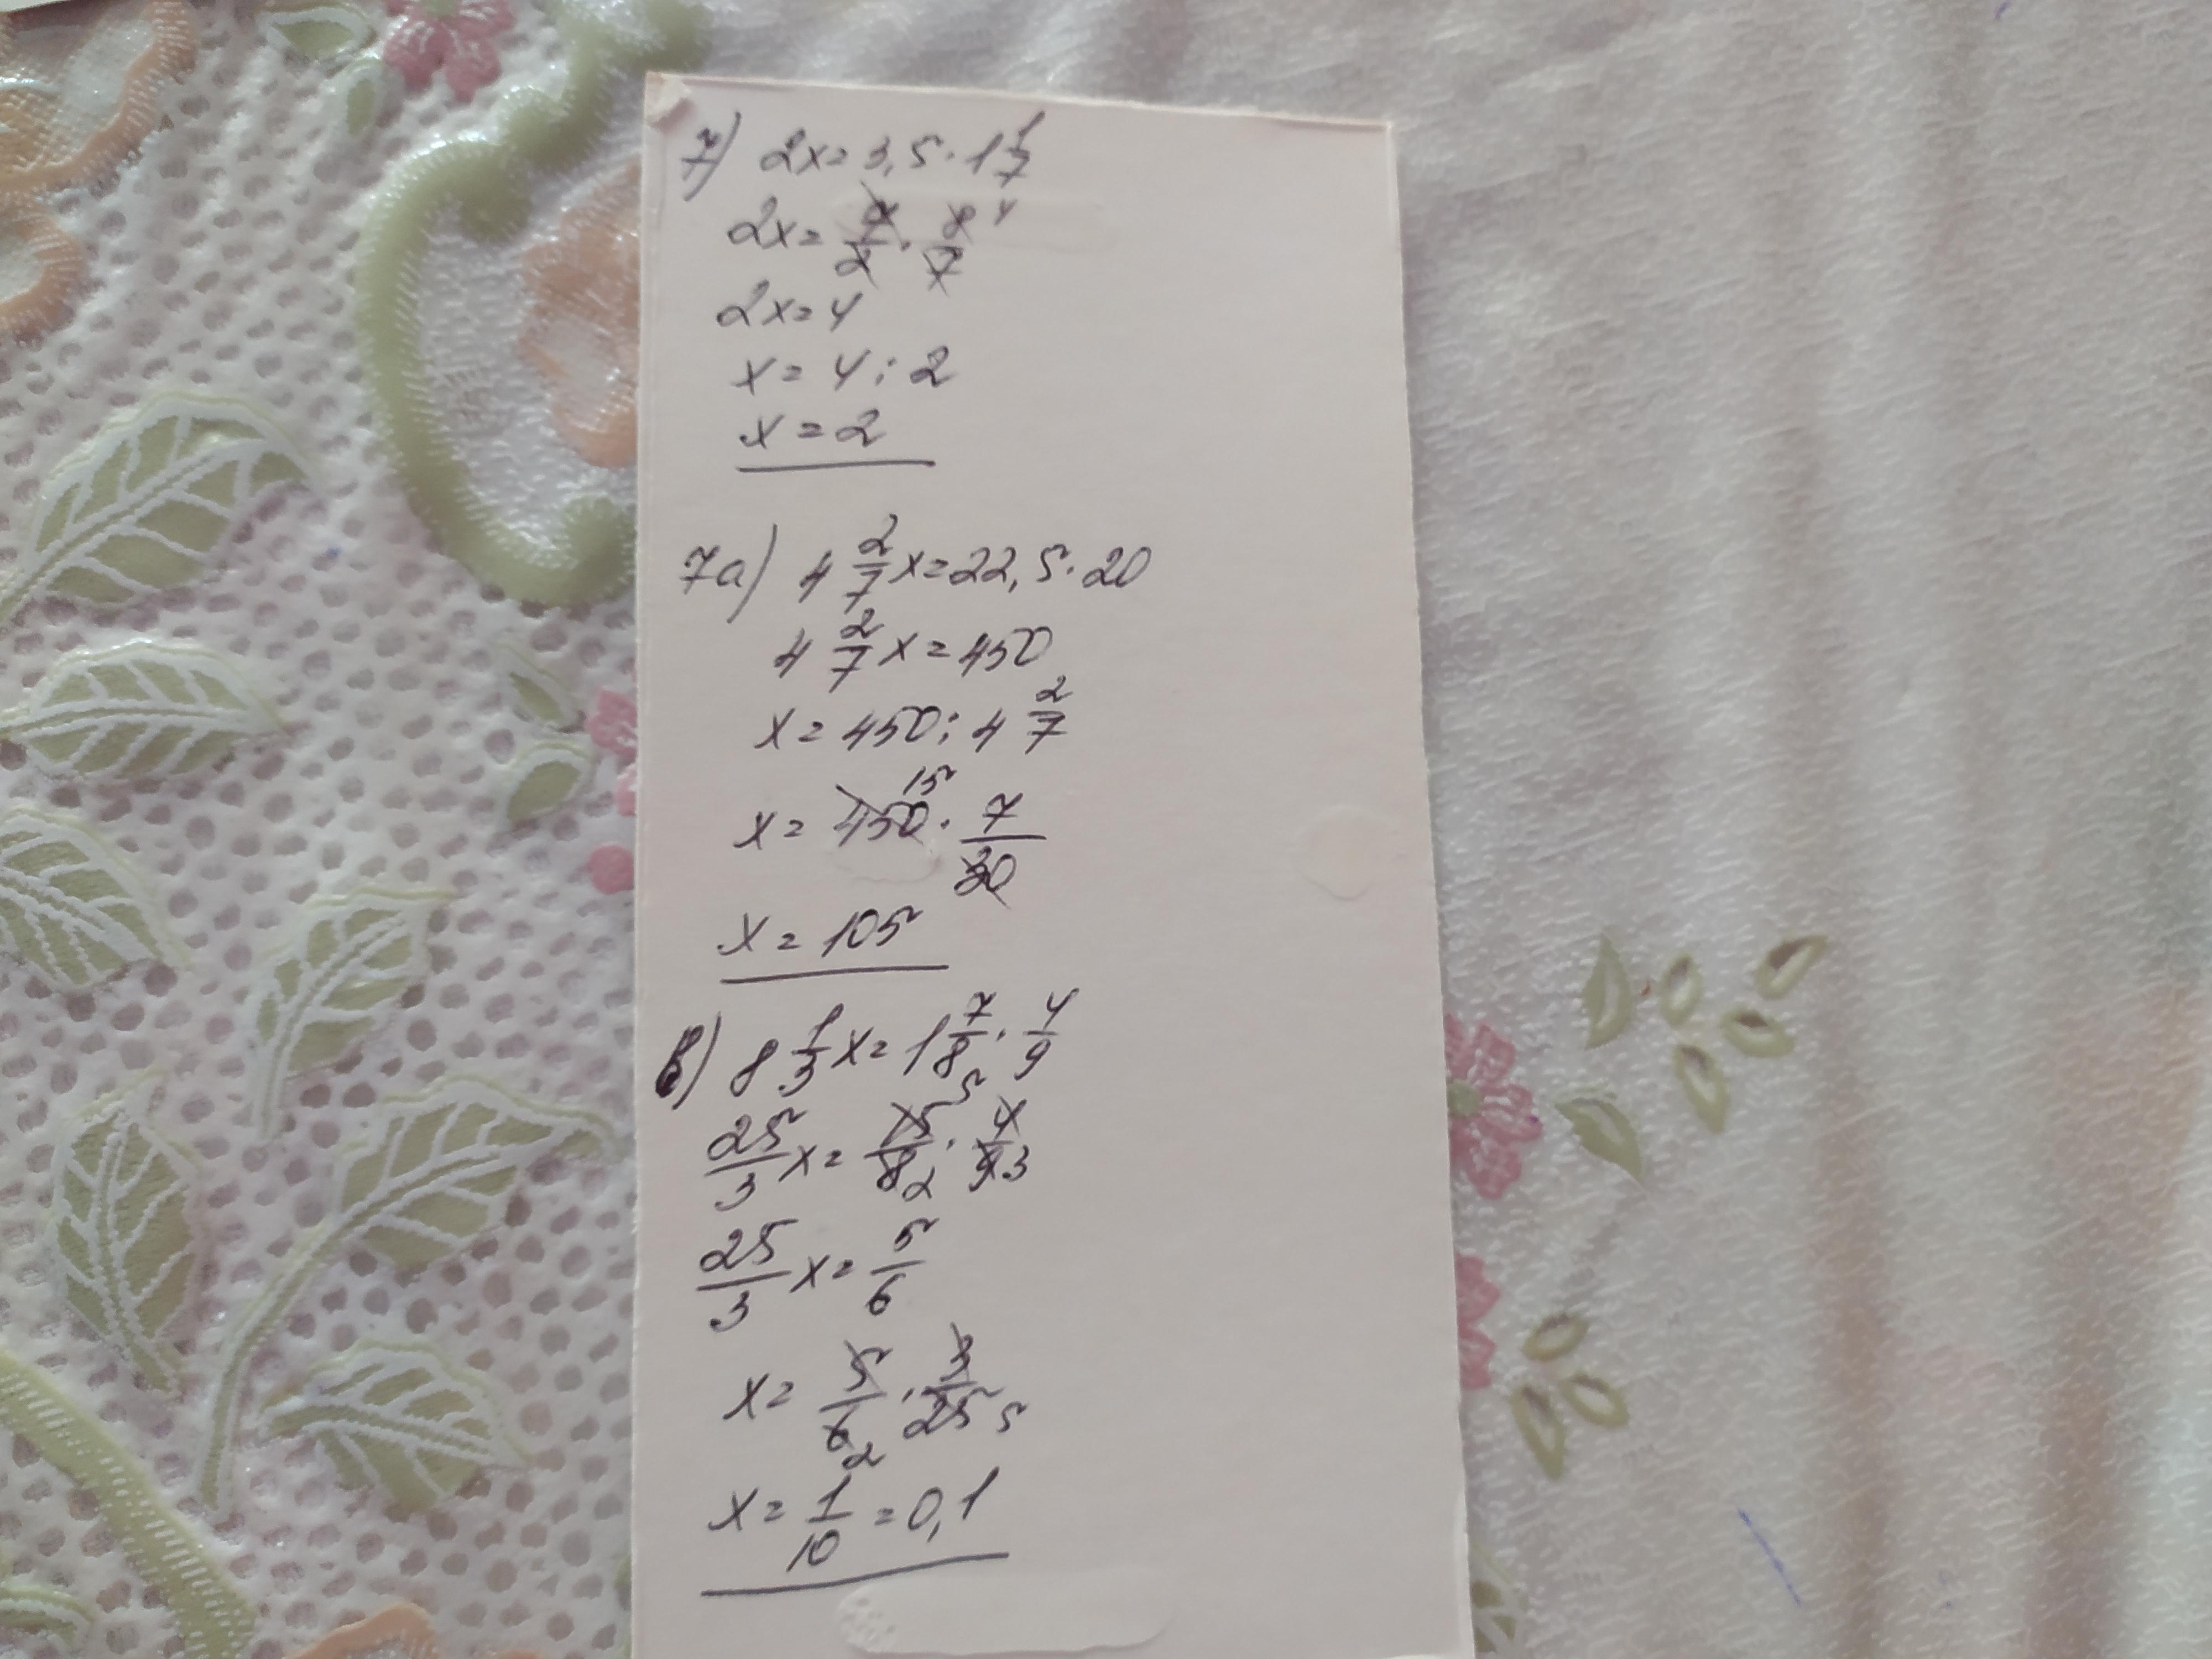 7) 2x = 3,5 · 1 1/7
2x = 7/2 · 8/7 4
2x = 4
x = 4 : 2
x = 2
7а) 4 2/7 x = 22,5 · 20
4 2/7 x = 450
x = 450 : 4 2/7
x = 450 15 · 7/30
x = 105
в) 8 1/3 x = 1 7/8 · 4/9
25/3 x = 15 5/8 2 · 4/9 3
25/3 x = 5/6
x = 5/6 2 · 3/25 5
x = 1/10 = 0,1